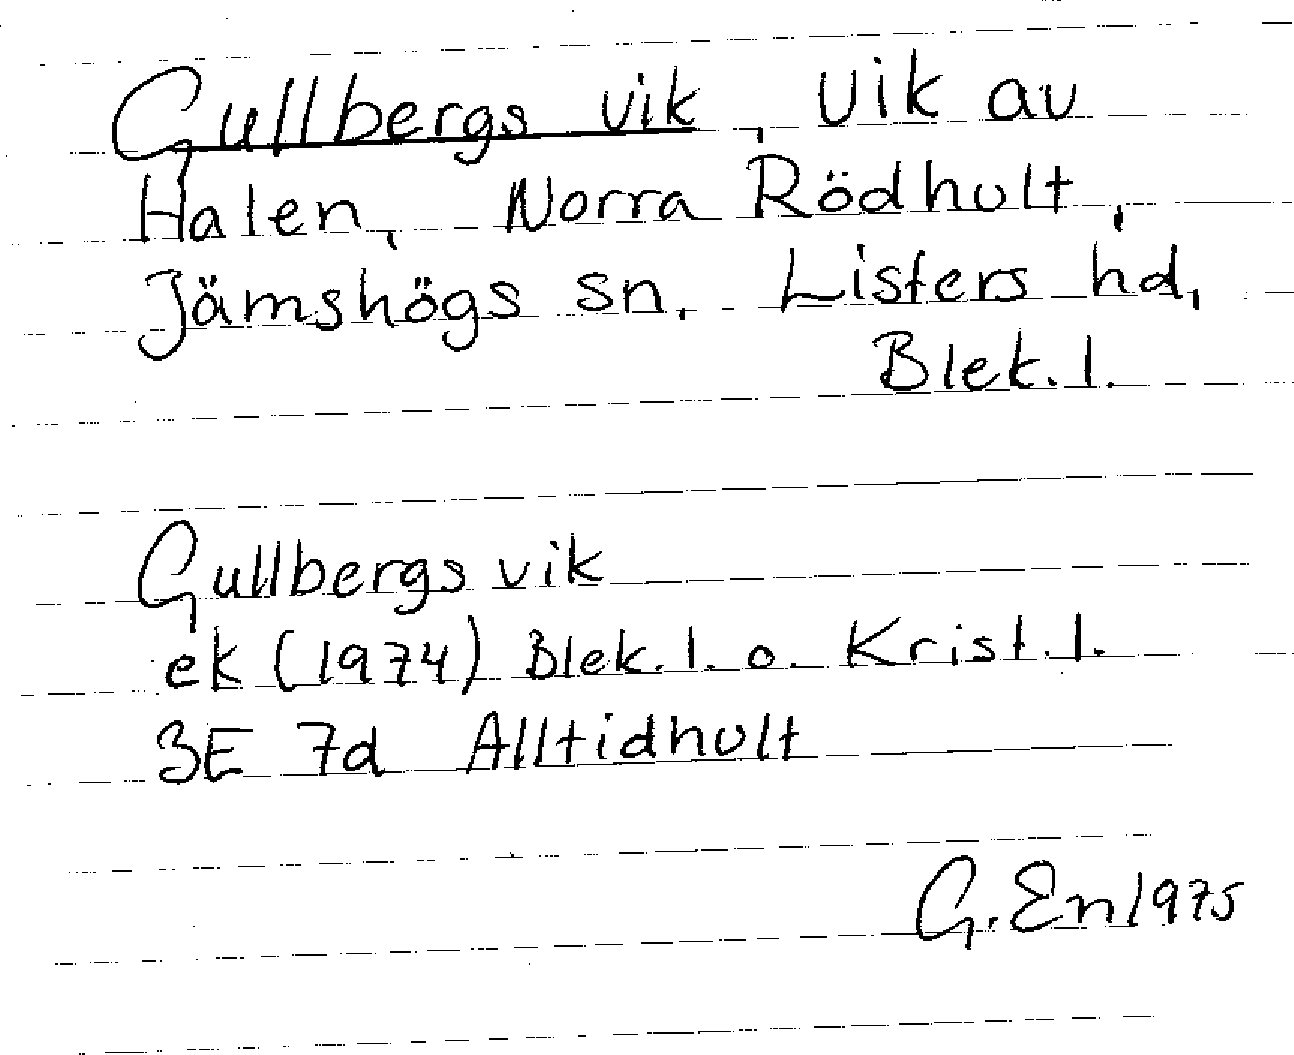 Gullbergs vik, Vik av
Halen, Norra Rödhult,
Jämshögs sn, Listers hd,
Blek. l.
Gullbergs vik
ek (1974) Blek. l. o. Krist. l.
3E 7d Alltidhult
G. En 1975